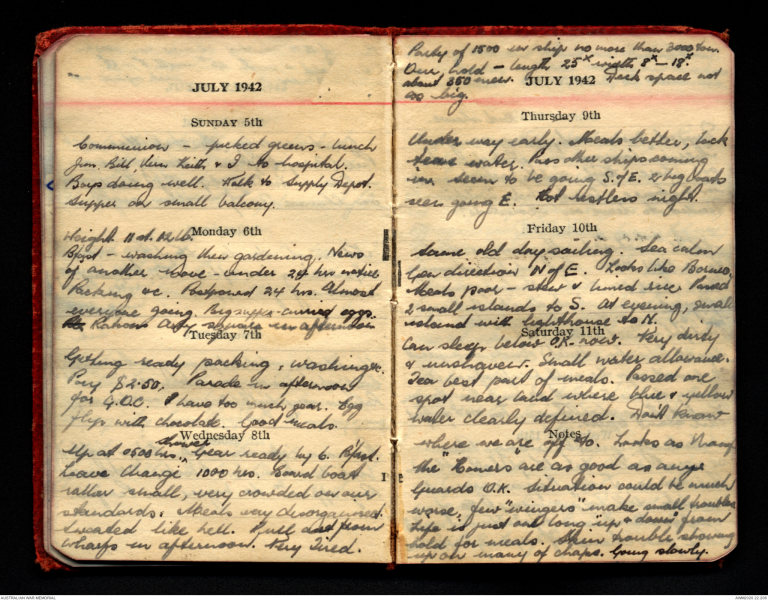 JULY 1942
SUNDAY 5th
Communion – picked greens – lunch
Jim, Bill, Vern Keith & I to hospital.
Boys doing well. Talk to Supply Depot.
Supper on small balcony.
Height 11 st. 12 lb.
Monday 6th
Bfast – washing then gardening. News
of another move – under 24 hrs notice
Packing &c. Postponed 24 hrs. Almost
everyone going. Big supper – curried eggs.
Rations A.Q. square in afternoon
Tuesday 7th
Getting ready packing, washing &c.
Pay $2.50. Parade in afternoon
for G.O.C. I have too much gear. Egg
flip with chocolate. Good meals.
Wednesday 8th
Up at 0500 hrs., shower gear ready by 6. Bfast.
Leave Changi 1000 hrs. Board boat
rather small, very crowded on our
standards. Meals very disorganised.
Sweated like hell. Pull out from
wharfs in afternoon. Very Tired.
Party of 1500 in ship no more than 3000 ton.
Our hold – length 25ˣ width 8ˣ – 18ˣ.
about 350 men. Deck space not
as big.
JULY 1942
Thursday 9th
Under way early. Meals better, lack
water. Pass other ships coming
in seem to be going S. of E. 2 big boats
seen going E. Hot restless night.
Friday 10th
Same old day sailing. Sea calm
Gen direction N of E. Looks like Borneo.
Meals poor – stew & limed rice Passed
2 small islands to S. At evening, small
island with lighthouse to N.
Saturday 11th
Can sleep below O.K. now. Very dirty
& unshaven. Small water allowance.
Tea best part of meals. Passed one
spot near land where blue & yellow
water clearly defined. Don't know
Notes
where we are off to. Looks as though
the "Homers" are as good as any
Guards O.K. Situation could be much
worse, few "wingers" make small troubles
Life is just one long up & down from
hold for meals. Skin trouble showing
up on many of chaps. Going slowly.
AUSTRALIAN WAR MEMORIAL